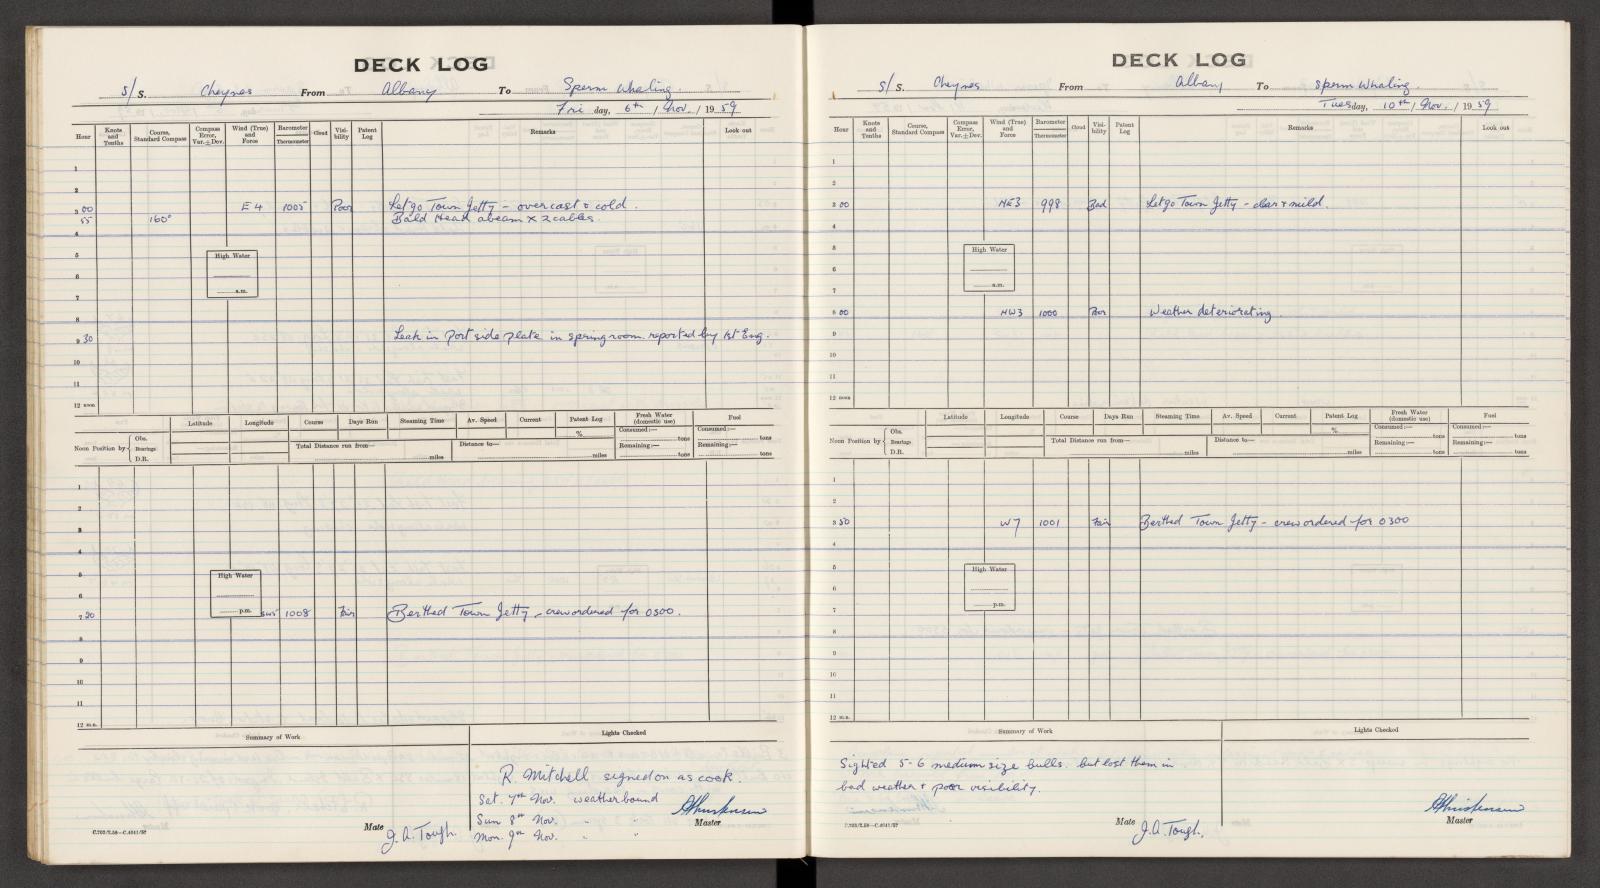 DECK LOG
S/S. Cheynes From Albany To Sperm Whaling.
Fri day, 6th / Nov. / 1959
Hour Knots and Tenths Course, Standard Compass Compass Error, Var.±Dev. Wind (True) and Force Barometer Thermometer Cloud Visibility Patent Log Remarks Look out
1
2
3 00 E 4 1005 Poor Let go Town Jetty - overcast & cold.
55 160° Bald Head abeam x 2 cables.
4
5 High Water
6
a.m.
7
8
9 30 Leak in port side plate in spring room reported by 1st Eng.
10
11
12 noon
Latitude Longitude Course Days Run Steaming Time Av. Speed Current Patent Log Fresh Water (domestic use) Fuel
% Consumed:— tons Consumed:— tons
Noon Position by Obs. Bearings D.R. Total Distance run from— miles Distance to— miles Remaining:— tons Remaining:— tons
1
2
3
4
5 High Water
6
p.m.
7 20 SW5 1008 Fair Berthed Town Jetty - crew ordered for 0300.
8
9
10
11
12 m.n.
Summary of Work Lights Checked
R. Mitchell signed on as cook.
Sat. 7th Nov. weatherbound
Sun 8th Nov. " "
Mon. 9th Nov. " "
Mate J.A. Tough. Master
C.703/2.58—C.4041/57
DECK LOG
S/S. Cheynes From Albany To Sperm Whaling.
Tues day, 10th / Nov. / 1959
Hour Knots and Tenths Course, Standard Compass Compass Error, Var.±Dev. Wind (True) and Force Barometer Thermometer Cloud Visibility Patent Log Remarks Look out
1
2
3 00 NE3 998 Bad Let go Town Jetty - clear & mild.
4
5 High Water
6
a.m.
7
8 00 NW3 1000 Poor Weather deteriorating.
9
10
11
12 noon
Latitude Longitude Course Days Run Steaming Time Av. Speed Current Patent Log Fresh Water (domestic use) Fuel
% Consumed:— tons Consumed:— tons
Noon Position by Obs. Bearings D.R. Total Distance run from— miles Distance to— miles Remaining:— tons Remaining:— tons
1
2
3 50 W7 1001 Fair Berthed Town Jetty - crew ordered for 0300
4
5 High Water
6
7 p.m.
8
9
10
11
12 m.n.
Summary of Work Lights Checked
Sighted 5-6 medium size bulls. but lost them in
bad weather & poor visibility.
Mate J.A. Tough. Master